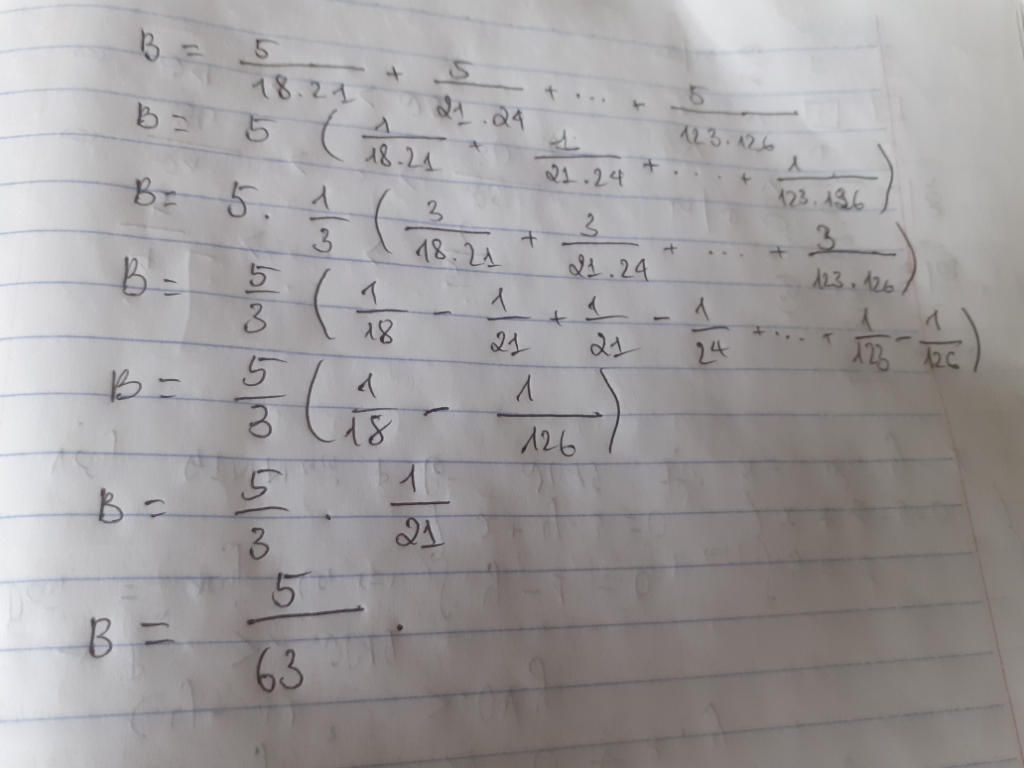 B = 5/18.21 + 5/21.24 + ... + 5/123.126
B = 5 ( 1/18.21 + 1/21.24 + .... + 1/123.126 )
B = 5 . 1/3 ( 3/18.21 + 3/21.24 + ... + 3/123.126 )
B = 5/3 ( 1/18 - 1/21 + 1/21 - 1/24 + ... + 1/123 - 1/126 )
B = 5/3 ( 1/18 - 1/126 )
B = 5/3 . 1/21
B = 5/63 .